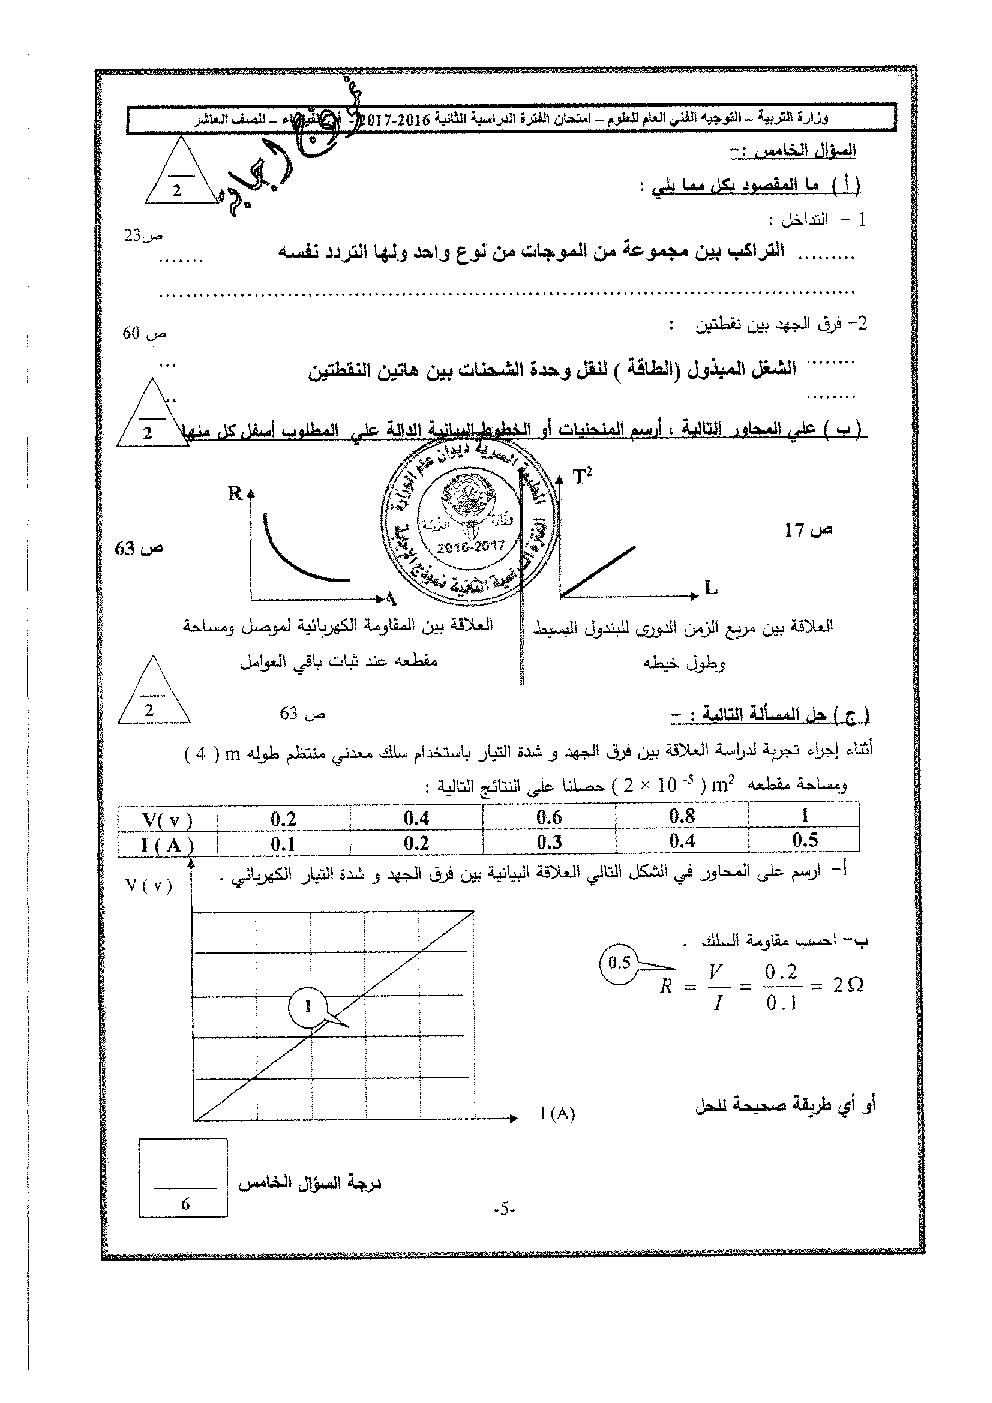 نموذج اجابة
وزارة التربية – التوجيه الفني العام للعلوم – امتحان الفترة الدراسية الثانية 2016-2017 – – الصف العاشر
السؤال الخامس :-
2
( أ ) ما المقصود بكل مما يلي :
1 – التداخل :
ص23
......... التراكب بين مجموعة من الموجات من نوع واحد ولها التردد نفسه .......
2- فرق الجهد بين نقطتين :
ص 60
........ الشغل المبذول (الطاقة ) لنقل وحدة الشحنات بين هاتين النقطتين ...
2
( ب ) علي المحاور التالية ، أرسم المنحنيات أو الخطوط البيانية الدالة علي المطلوب أسفل كل منها
T²
L
ص 17
R
A
ص 63
المطبعة السرية ديوان عام الوزارة
2016-2017
الفترة الدراسية الثانية نموذج الإجابة
العلاقة بين مربع الزمن الدوري للبندول البسيط
وطول خيطه
العلاقة بين المقاومة الكهربائية لموصل ومساحة
مقطعه عند ثبات باقي العوامل
2
( ج ) حل المسألة التالية : -
ص 63
أثناء إجراء تجربة لدراسة العلاقة بين فرق الجهد و شدة التيار باستخدام سلك معدني منتظم طوله m ( 4 )
ومساحة مقطعه m² ( 2 × 10⁻⁵ ) حصلنا على النتائج التالية :
V( v ) 0.2 0.4 0.6 0.8 1
I ( A ) 0.1 0.2 0.3 0.4 0.5
أ- ارسم على المحاور في الشكل التالي العلاقة البيانية بين فرق الجهد و شدة التيار الكهربائي .
V ( v )
1
I (A)
ب- احسب مقاومة السلك .
0.5
R = V / I = 0.2 / 0.1 = 2Ω
أو أي طريقة صحيحة للحل
درجة السؤال الخامس
6
-5-